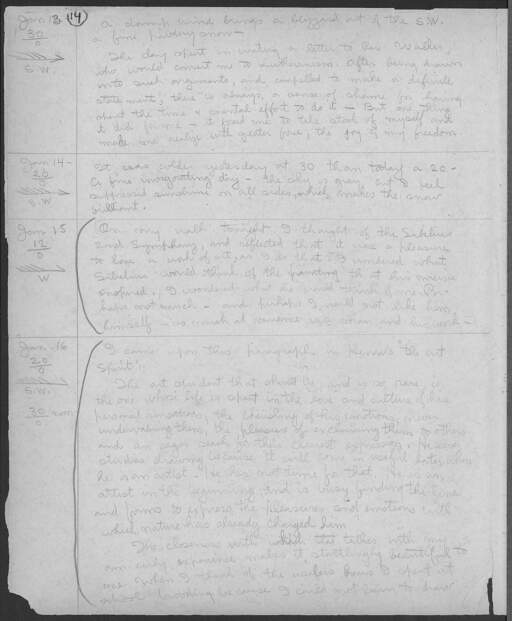 Jan. 13 (14)
30
0
S.W.
A damp wind brings a blizzard out of the S.W.
a fine powdery snow –
The day spent in writing a letter to
who would convert me to After being drawn
into such arguments, and compelled to make a definite
statement, there is always a sense of shame for having
spent the time & mental effort to do it – But one thing
it did for me – it forced me to take stock of myself and
made me realize with greater force, the joy of my freedom.
Jan 14 –
20
0
S.W.
It was colder yesterday at 30 than today a 20 –
A fine invigorating day – the sky is gray but I feel
suppressed sunshine on all sides, which makes the snow
brilliant.
Jan. 15
12
0
W
On my walk tonight I thought of the Sibelius
2nd Symphony, and reflected that it was a pleasure
to love a work of art, as I do that – I wondered what
Sibelius would think of the painting that his music
inspired, I wondered what he would think of me. Per-
haps not much – and perhaps I would not like him,
himself – as much as someone
Jan. 16
20
0
S.W.
30 noon
0
I came upon this paragraph in Henri's "The Art
Spirit":
The art student that should be, and is so rare, is
the one whose life is spent in the love and culture of his
personal sensations, the cherishing of his emotions, never
undervaluing them, the pleasure of exclaiming them to others
and an eager search for their clearest expression. He never
studies drawing because it will come in useful later when
he is an artist. He has not time for that. He is an
artist in the beginning and is busy finding the lines
and forms to express the pleasures and emotions with
which nature has already charged him.
The closeness with which this tallies with my
own early experience makes it startlingly beautiful to
me when I think of the useless hours I spent at
school because I could not learn to draw